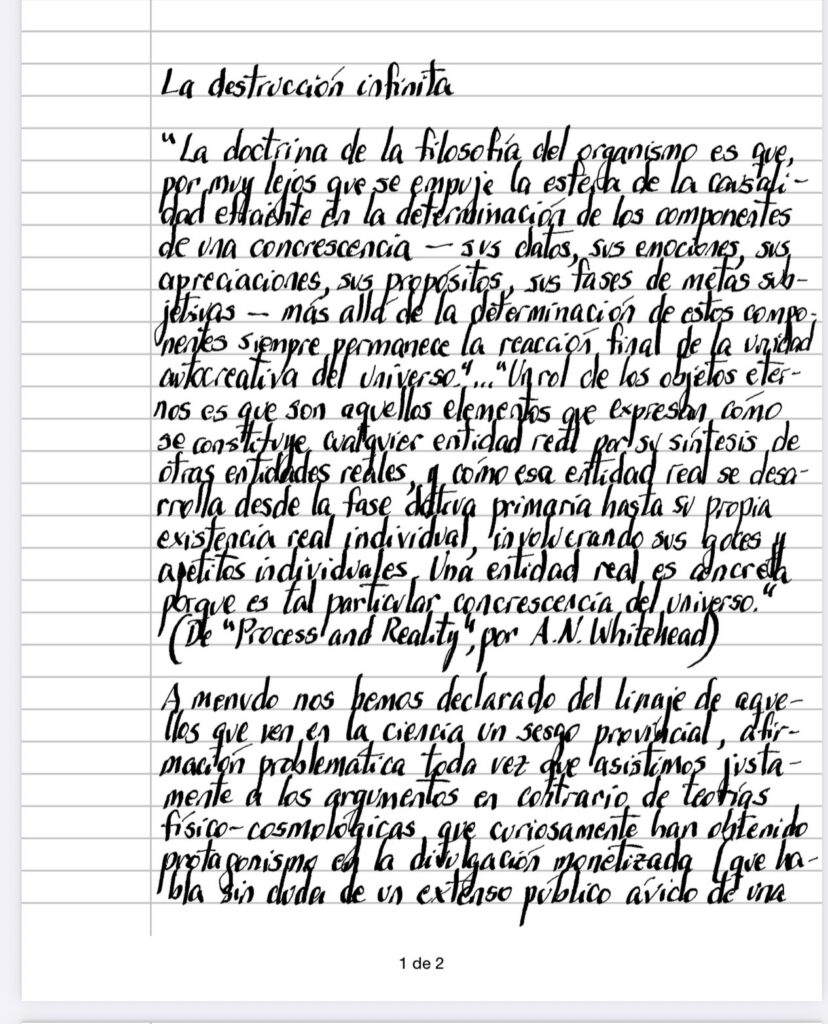 La destrucción infinita
"La doctrina de la filosofía del organismo es que,
por muy lejos que se empuje la esfera de la causali-
dad eficiente en la determinación de los componentes
de una concrescencia — sus datos, sus emociones, sus
apreciaciones, sus propósitos, sus fases de metas sub-
jetivas — más allá de la determinación de estos compo-
nentes siempre permanece la reacción final de la unidad
autocreativa del universo."..."Un rol de los objetos eter-
nos es que son aquellos elementos que expresan cómo
se constituye cualquier entidad real por su síntesis de
otras entidades reales, y cómo esa entidad real se desa-
rrolla desde la fase dativa primaria hasta su propia
existencia real individual, involucrando sus goces y
apetitos individuales. Una entidad real es concreta
porque es tal particular concrescencia del universo."
(De "Process and Reality", por A.N. Whitehead)
A menudo nos hemos declarado del linaje de aque-
llos que ven en la ciencia un sesgo provincial, afir-
mación problemática toda vez que asistimos justa-
mente a los argumentos en contrario de teorías
físico-cosmológicas, que curiosamente han obtenido
protagonismo en la divulgación monetizada (que ha-
bla sin duda de un extenso público ávido de una
1 de 2